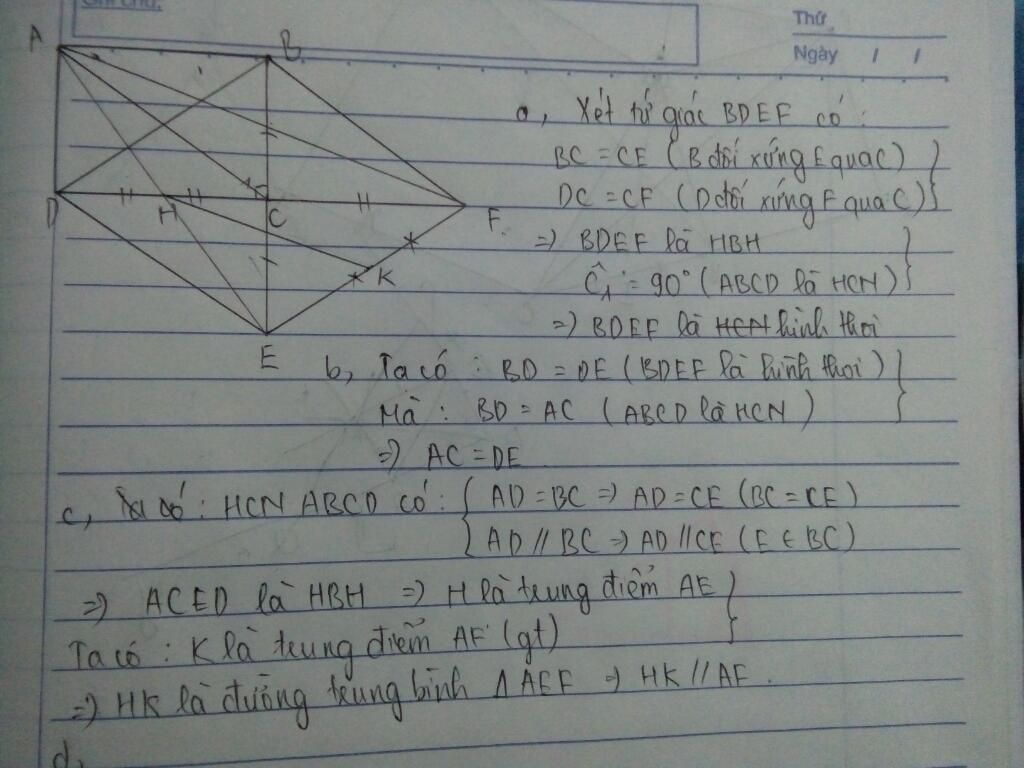 Ghi chú:
Thứ
Ngày / /
A
B
D
H
C
F
K
E
a, Xét tứ giác BDEF có:
BC = CE (B đối xứng E qua C)
DC = CF (D đối xứng F qua C)
=> BDEF là HBH
Ĉ₁ = 90° (ABCD là HCN)
=> BDEF là HCN hình thoi
b, Ta có : BD = DE (BDEF là hình thoi)
Mà : BD = AC (ABCD là HCN)
=> AC = DE
c, Ta có : HCN ABCD có : { AD = BC => AD = CE (BC = CE)
AD // BC => AD // CE (E ∈ BC)
=> ACED là HBH => H là trung điểm AE
Ta có : K là trung điểm AF (gt)
=> HK là đường trung bình Δ AEF => HK // AF.
d,